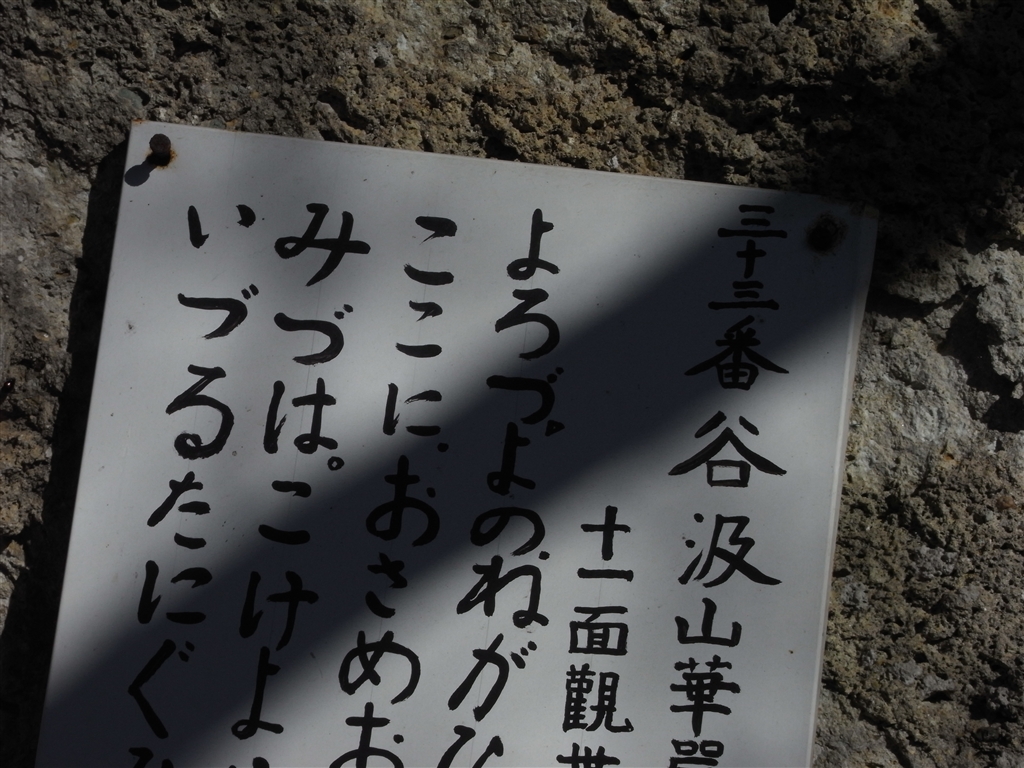 三十三番谷汲山華嚴
十一面觀世
よろづよのねがひ
ここにおさめお
みづは。こけよ
いづるたにぐ